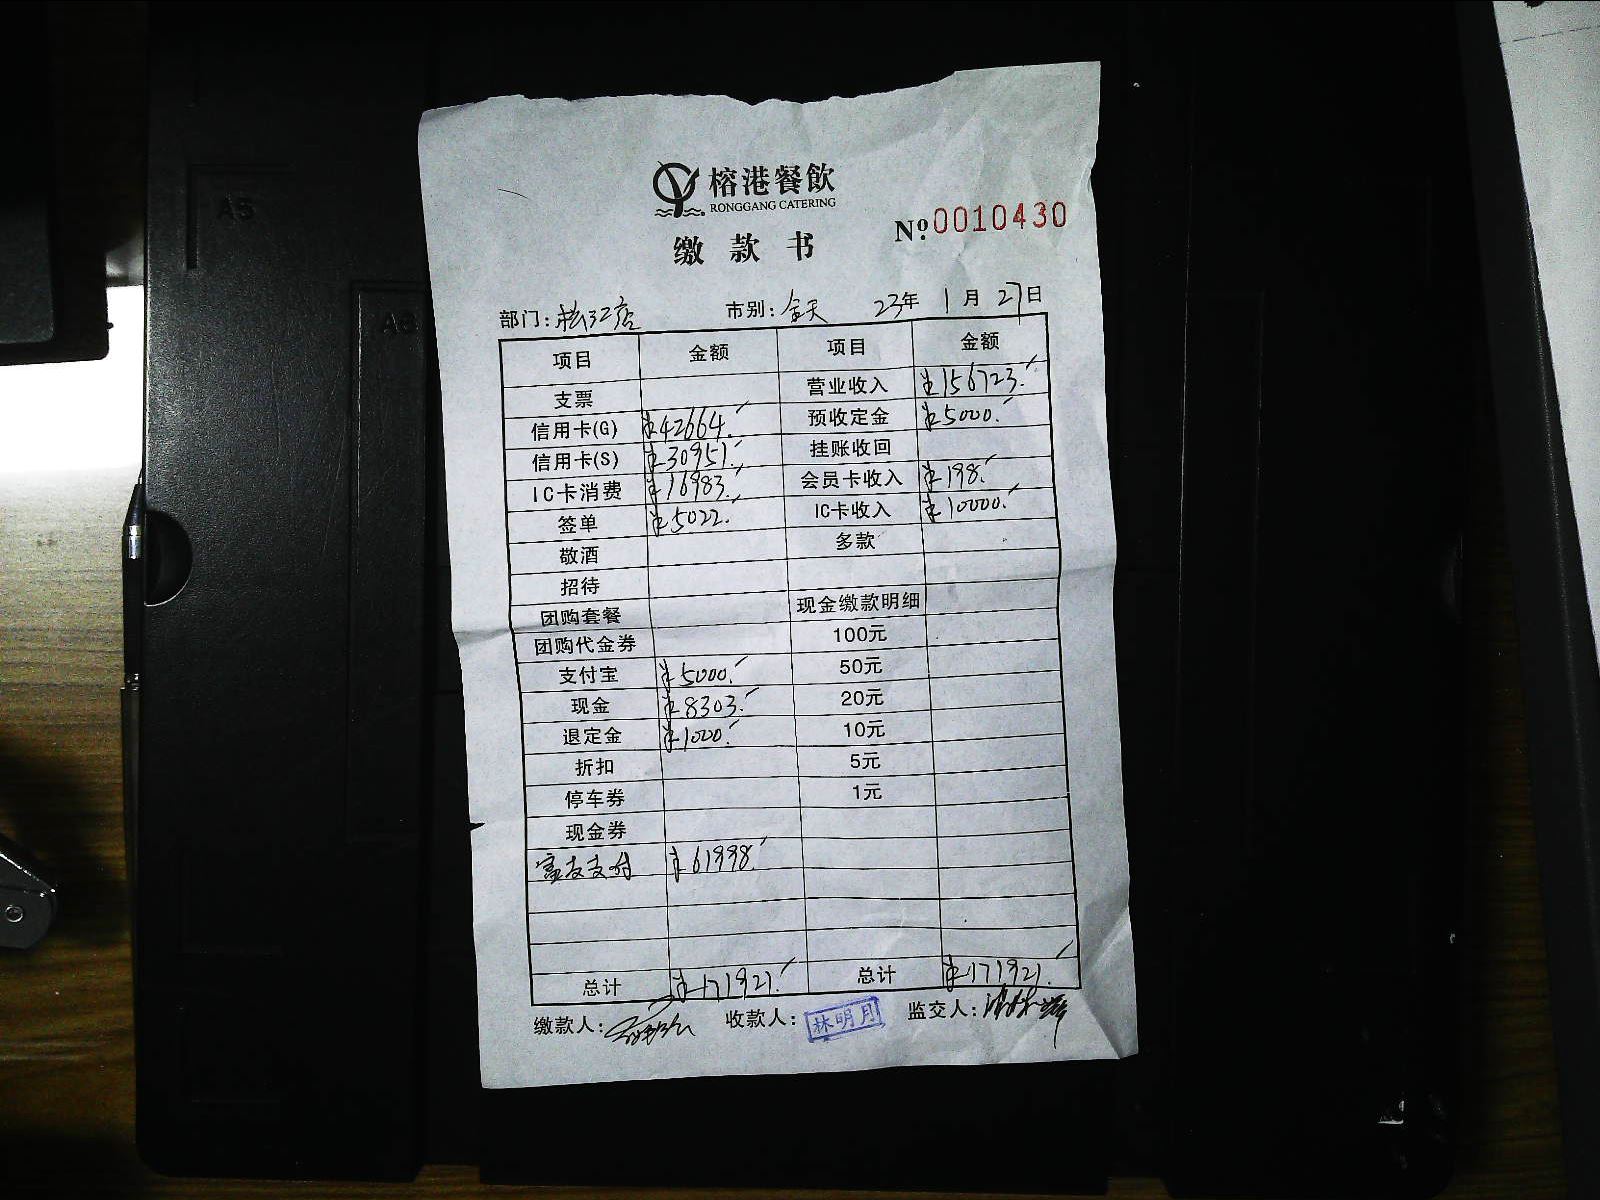 榕港餐飲
RONGGANG CATERING
缴款书
№ 0010430
部门: 松江店 市别: 全天 23年 1月 27日
项目 金额 项目 金额
支票 营业收入 ¥156723.
信用卡(G) ¥42664. 预收定金 ¥5000.
信用卡(S) ¥30951. 挂账收回
IC卡消费 ¥16983. 会员卡收入 ¥198.
签单 ¥5022. IC卡收入 ¥10000.
敬酒 多款
招待
团购套餐 现金缴款明细
团购代金券 100元
支付宝 ¥5000. 50元
现金 ¥8303. 20元
退定金 ¥1000. 10元
折扣 5元
停车券 1元
现金券
富友支付 ¥61998.
总计 ¥171921. 总计 ¥171921.
缴款人: 收款人: 林明月 监交人:
A5
A5